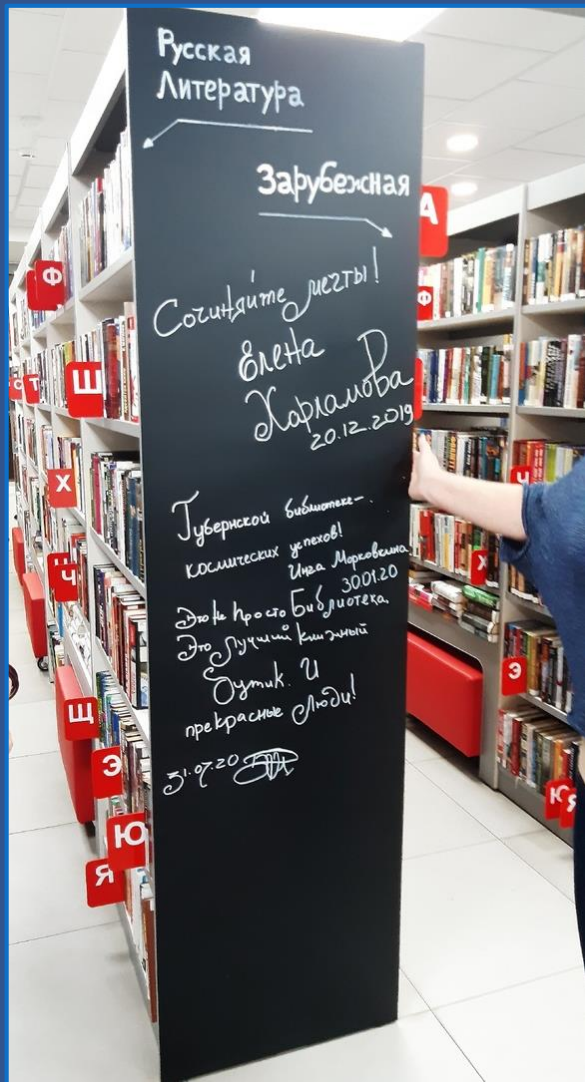 Русская
Литература
Зарубежная
Сочиняйте мечты!
Елена
Харламова
20.12.2019
Губернской библиотеке –
космических успехов!
Инга Морковкина
30.01.20
Это не просто Библиотека.
Это лучший книжный
Бутик. И
прекрасные люди!
31.07.20
А
Ф
Ф
С
Т
Ш
Х
Ч
Щ
Э
Ю
Я
Ч
Х
Э
Ю
Я